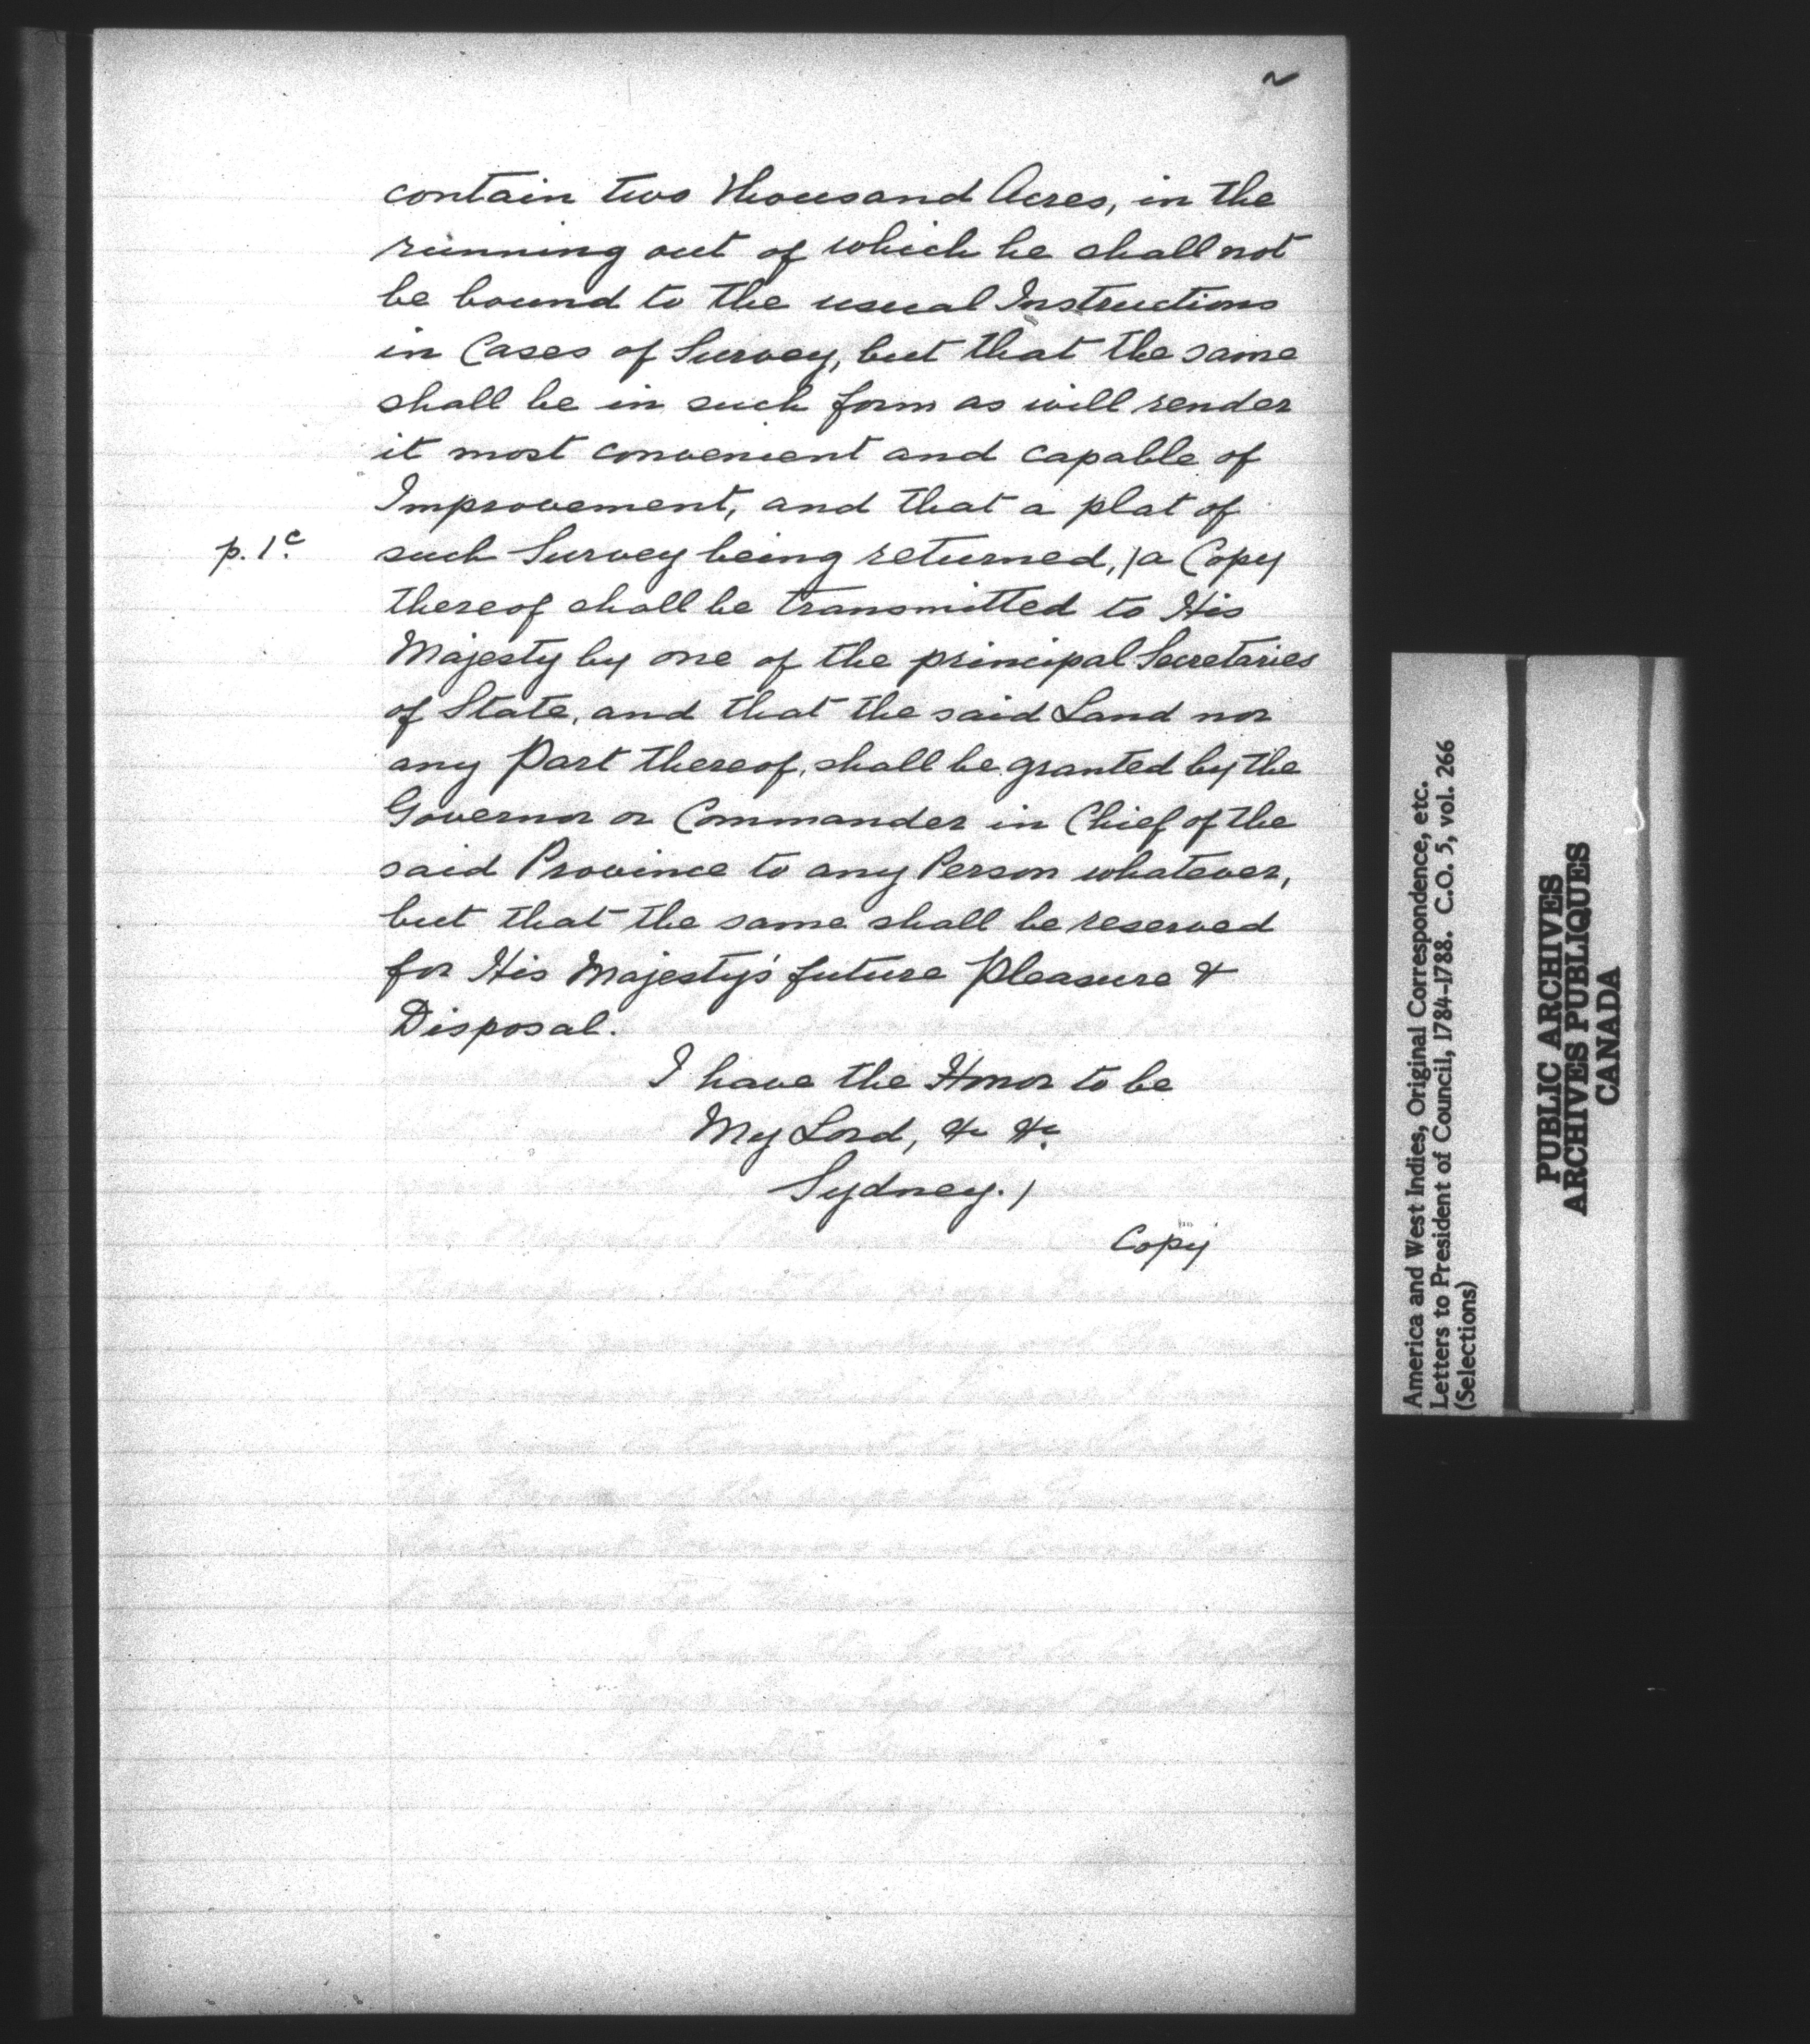 2
contain two thousand Acres, in the
running out of which he shall not
be bound to the usual Instructions
in Cases of Survey, but that the same
shall be in such form as will render
it most convenient and capable of
Improvement, and that a plat of
p. 1.c such Survey being returned, / a Copy
thereof shall be transmitted to His
Majesty by one of the principal Secretaries
of State, and that the said Land nor
any Part thereof, shall be granted by the
Governor or Commander in Chief of the
said Province to any Person whatever,
but that the same shall be reserved
for His Majesty's future Pleasure &
Disposal.
I have the Honor to be
My Lord, &c &c.
Sydney. /
Copy
America and West Indies, Original Correspondence, etc.
Letters to President of Council, 1784-1788. C.O. 5, vol. 266
(Selections)
PUBLIC ARCHIVES
ARCHIVES PUBLIQUES
CANADA